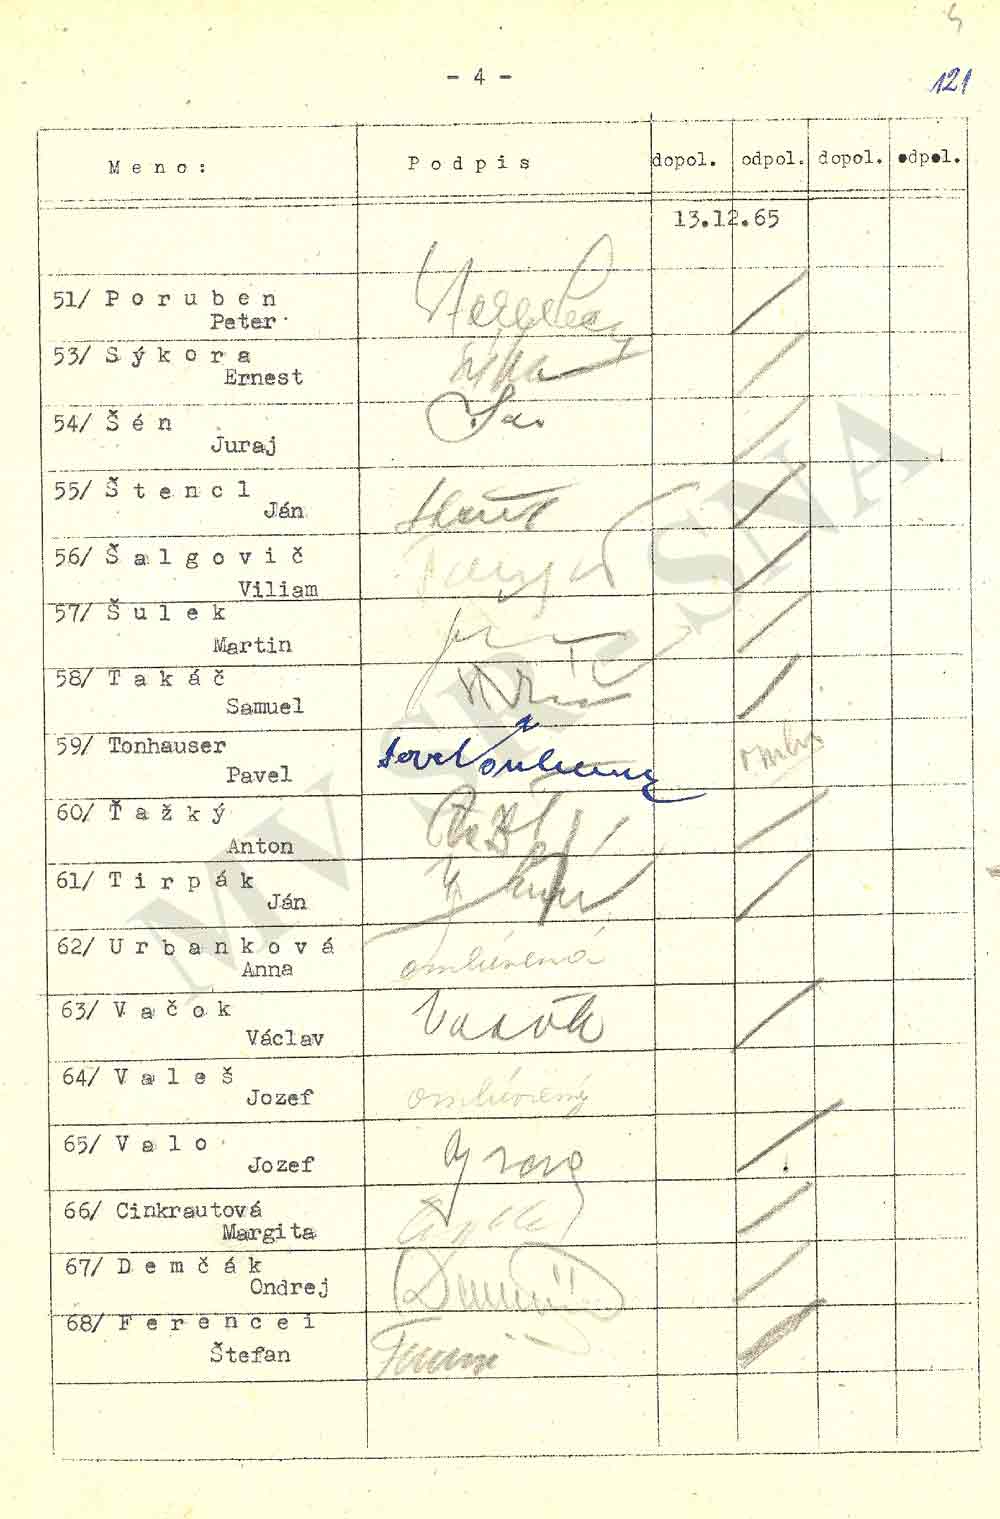 - 4 -
121
Meno: Podpis dopol. odpol. dopol. odpol.
13.12.65
51/ Poruben
Peter
53/ Sýkora
Ernest
54/ Šén
Juraj
55/ Štencl
Ján
56/ Šalgovič
Viliam
57/ Šulek
Martin
58/ Takáč
Samuel
59/ Tonhauser
Pavel
60/ Ťažký
Anton
61/ Tirpák
Ján
62/ Urbanková omluvená
Anna
63/ Vačok
Václav
64/ Valeš omluvený
Jozef
65/ Valo
Jozef
66/ Cinkrautová
Margita
67/ Demčák
Ondrej
68/ Ferencei
Štefan
MV SR SNA